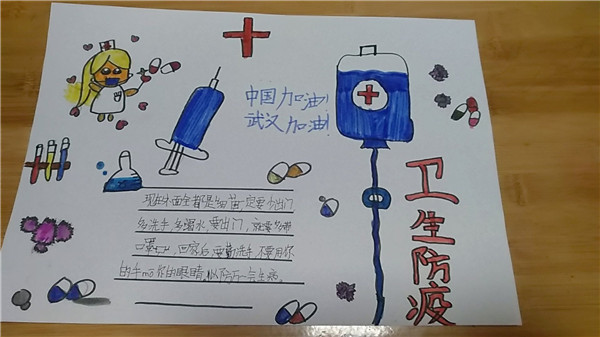 中国加油!
武汉加油!
卫生防疫
现在外面全都是细菌一定要少出门
多洗手,多喝水,要出门,就要多带
口罩,回家后要勤洗手,不要用你
的手mo你的眼睛,以防万一会生病。